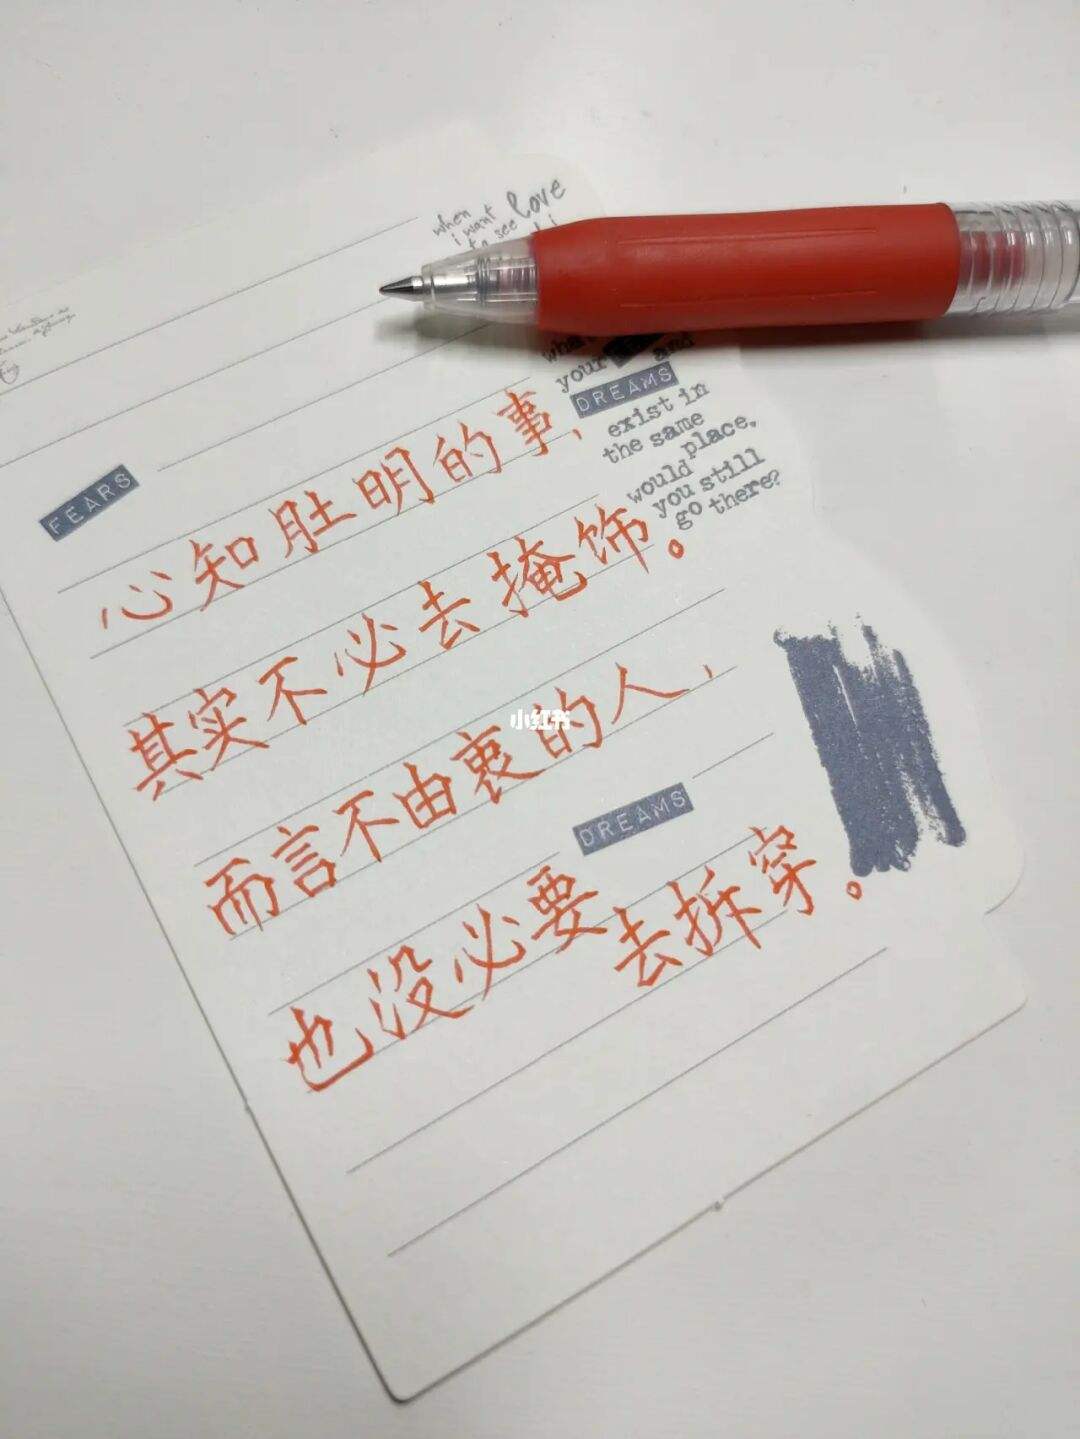 when
i want love
to see
what
your and
DREAMS
exist in
the same
place,
would
you still
go there?
FEARS
心知肚明的事、
其实不必去掩饰。
小红书
而言不由衷的人、
DREAMS
也没必要去拆穿。